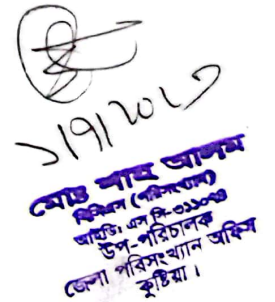 ১/৭/২০১৩
মোঃ শাহ আলম
বিসিএস (পরিসংখ্যান)
আইডি: এস সি-৩১১০৭৪
উপ-পরিচালক
জেলা পরিসংখ্যান অফিস
কুষ্টিয়া।